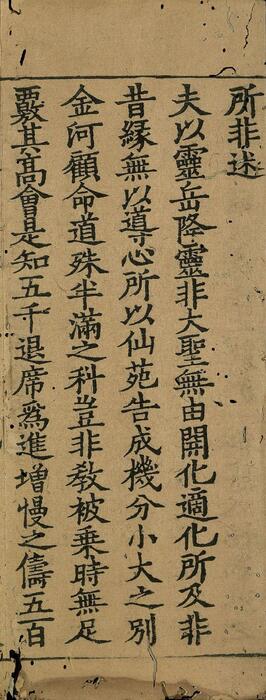 所非述
夫以靈岳降靈非大聖無由開化適化所及非
昔緣無以導心所以仙苑告成機分小大之別
金河顧命道殊半滿之科豈非教被乗時無足
覈其髙會是知五千退席爲進增慢之儔五百